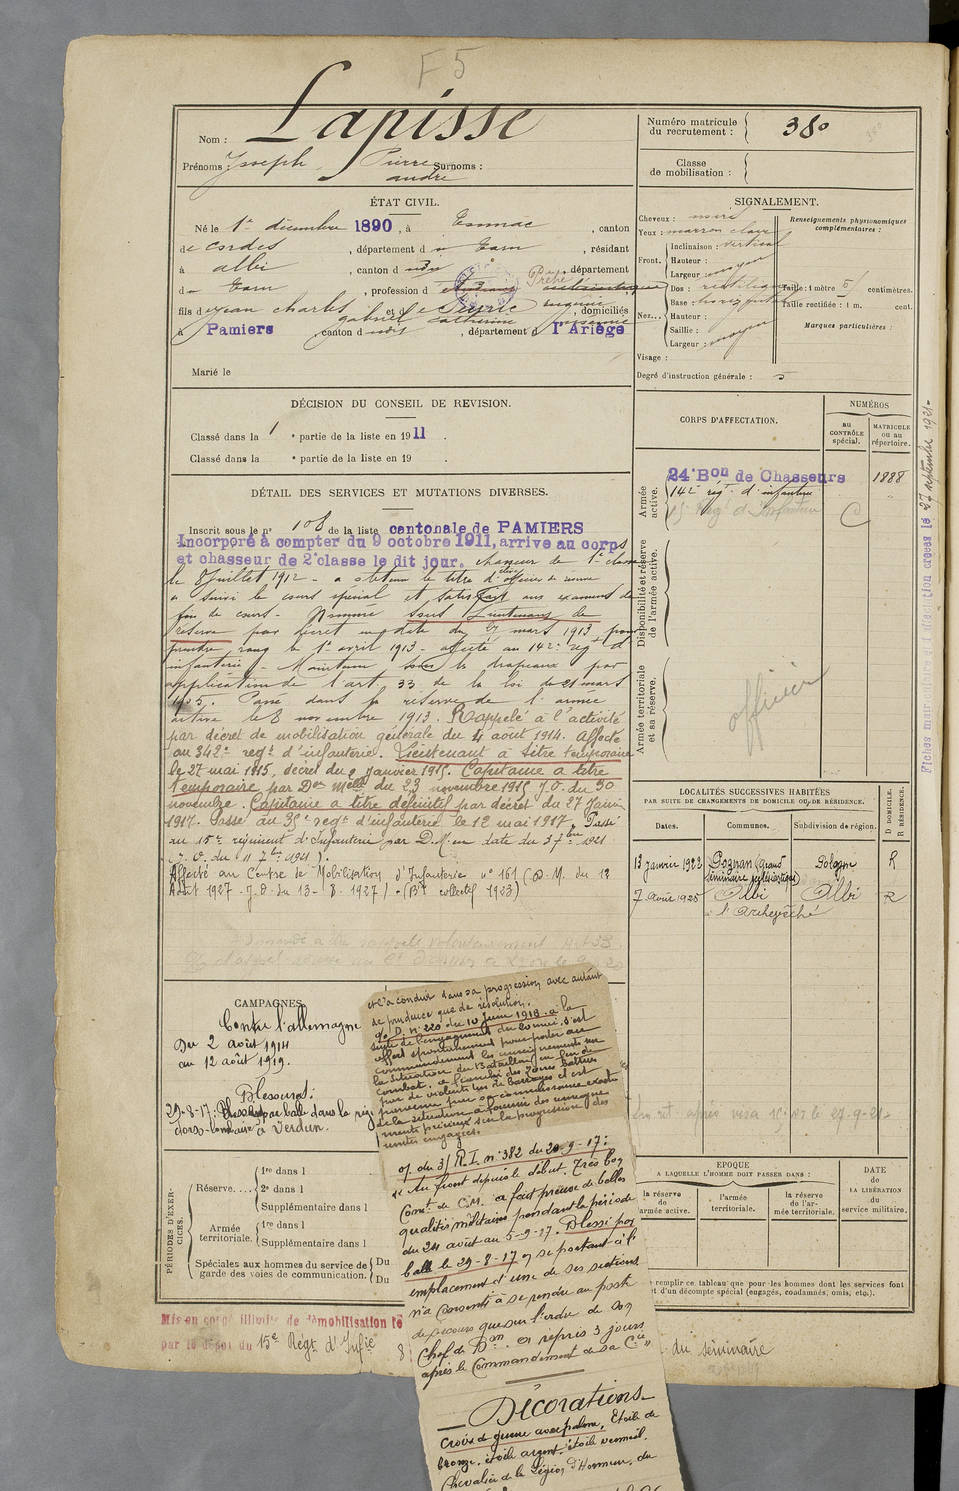 F5
Nom : Lapisse
Prénoms : Joseph Pierre Surnoms :
andré
Numéro matricule
du recrutement : 380
Classe
de mobilisation :
ÉTAT CIVIL.
Né le 1er décembre 1890, à , canton
de Cordes, département du Tarn, résidant
à albi, canton d udit, département
du Tarn, profession d Prêtre
fils de jean charles gabriel et de catherine , domiciliés
à Pamiers, canton dudit, département de l'Ariège
Marié le
SIGNALEMENT.
Cheveux : noirs
Yeux : marron clair
Front. Inclinaison : vertical
Hauteur :
Largeur : moyen
Nez... Dos : rectiligne
Base : horizontal
Hauteur :
Saillie :
Largeur : moyen
Visage :
Degré d'instruction générale : 5
Renseignements physionomiques
complémentaires :
Taille : 1 mètre centimètres.
Taille rectifiée : 1 m. cent.
Marques particulières :
DÉCISION DU CONSEIL DE REVISION.
Classé dans la 1 e partie de la liste en 1911.
Classé dans la e partie de la liste en 19 .
DÉTAIL DES SERVICES ET MUTATIONS DIVERSES.
Inscrit sous le n° 108 de la liste cantonale de PAMIERS
Incorporé à compter du 9 octobre 1911, arrive au corps
et chasseur de 2e classe le dit jour. chasseur de 1e classe
le 8 juillet 1912 - a obtenu le titre d'élève officier de réserve
a suivi le cours spécial et satisfait aux examens de
fin de cours - Nommé sous lieutenant de
réserve par décret en date du 27 mars 1913 pour
prendre rang le 1er avril 1913 - affecté au 142e régt d'
infanterie - Maintenu sous les drapeaux par
application de l'art 33 de la loi du 21 mars
1905. Passé dans la réserve de l'armée
active le 8 novembre 1913. Rappelé à l'activité
par décret de mobilisation générale du 4 août 1914. Affecté
au 342e regt d'infanterie. Lieutenant à titre temporaire
le 27 mai 1915, décret du 2 janvier 1915. Capitaine a titre
temporaire par Don Melle du 23 novembre 1915 J.O. du 30
novembre. Capitaine a titre définitif par décret du 27 Janvier
1917. Passé au 35e regt d'infanterie le 12 mai 1917. Passé
au 15e régiment d'Infanterie par D.M. en date du 1921
(J.O. du 11 7bre 1921).
Affecté au Centre de Mobilisation d'Infanterie n° 161 (D.M. du 12
Août 1927 - J.O. du 13-8-1927) - (Bt collectif 1923)
CORPS D'AFFECTATION.
NUMÉROS
au CONTRÔLE spécial.
MATRICULE ou au répertoire.
Armée active.
24e Bon de Chasseurs 1888
142e régt d'infanterie
15e Régt d'Infanterie C
Disponibilité et réserve de l'armée active.
Armée territoriale et sa réserve.
officier
Fiches matricules et d'affectation créées le 27 septembre 1921-
LOCALITÉS SUCCESSIVES HABITÉES
PAR SUITE DE CHANGEMENTS DE DOMICILE OU DE RÉSIDENCE.
Dates. Communes. Subdivision de région. D DOMICILE. R RÉSIDENCE.
13 janvier 1923 Poznan (Grand Pologne R
séminaire
7 août 1925 Albi Albi R
à l'Archevêché
CAMPAGNES.
Contre l'allemagne
Du 2 août 1914
au 12 août 1919.
Blessures :
29-8-17 : Blessé par balle dans la région
dorso-lombaire à Verdun.
et l'a conduit dans sa progression avec autant
de prudence que de résolution.
O. D. n° 220 du 10 Juin 1918 : a la
suite de l'engagement du 20 mai, s'est
offert spontanément pour porter au
commandement les renseignements sur
la situation du Bataillon en fin de
combat. a franchi des zones battues
par de violents tirs de barrages et est
parvenu par sa connaissance exacte
de la situation à fournir des renseigne
ments précieux sur la progression des
unités engagées.
O/ du 35 R.I. n° 382 du 20-9-17 :
"Au front depuis le début. Très bon
Comt de Cie a fait preuve de belles
qualités militaires pendant la période
du 24 août au 5-9-17. Blessé par
balle le 29-8-17 en se portant à l'
emplacement d'une de ses sections
n'a consenti à se rendre au poste
de secours que sur l'ordre de son
Chef de Bon. a repris 3 jours
après le Commandement de sa Cie"
Décorations
Croix de guerre avec palme, étoile de
bronze, étoile argent, étoile vermeil.
Chevalier de la Légion d'Honneur, du
PÉRIODES D'EXERCICES.
Réserve.... 1re dans l
2e dans l
Supplémentaire dans l
Armée territoriale. 1re dans l
Supplémentaire dans l
Spéciales aux hommes du service de garde des voies de communication. Du
Du
EPOQUE
A LAQUELLE L'HOMME DOIT PASSER DANS :
la réserve de armée active.
l'armée territoriale.
la réserve de l'armée territoriale.
DATE de LA LIBÉRATION du service militaire.
remplir ce tableau que pour les hommes dont les services font
t d'un décompte spécial (engagés, condamnés, omis, etc.).
Mis en congé illimité de démobilisation le
par le dépôt du 15e Régt d'Infie
du séminaire